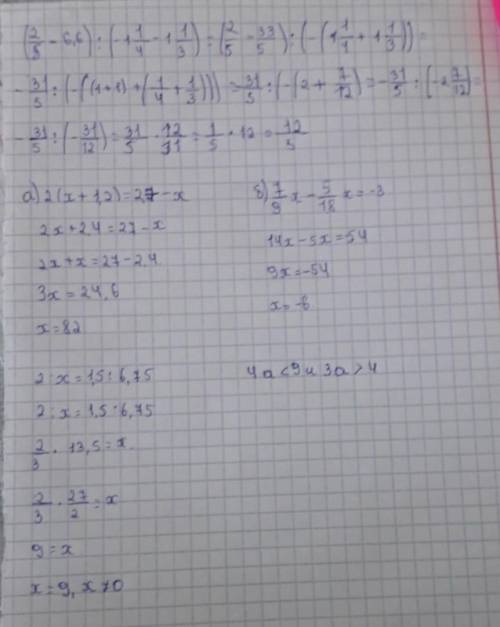 (2/5 - 6,6) : (-1 1/4 - 1 1/3) = (2/5 - 33/5) : (-(1 1/4 + 1 1/3)) =
- 31/5 : (-((1+1) + (1/4 + 1/3))) = -31/5 : (-(2 + 7/12) = -31/5 : (-2 7/12) =
- 31/5 : (-31/12) = 31/5 · 12/31 = 1/5 · 12 = 12/5
а) 2(x + 1,2) = 27 - x
2x + 2,4 = 27 - x
2x + x = 27 - 2,4
3x = 24,6
x = 82
б) 7/9 x - 5/18 x = -3
14x - 5x = 54
9x = -54
x = -6
2 : x = 1,5 : 6,75
2 : x = 1,5 : 6,75
2/3 · 13,5 = x
2/3 · 27/2 = x
9 = x
x = 9, x ≠ 0
4a < 9 и 3a > 4